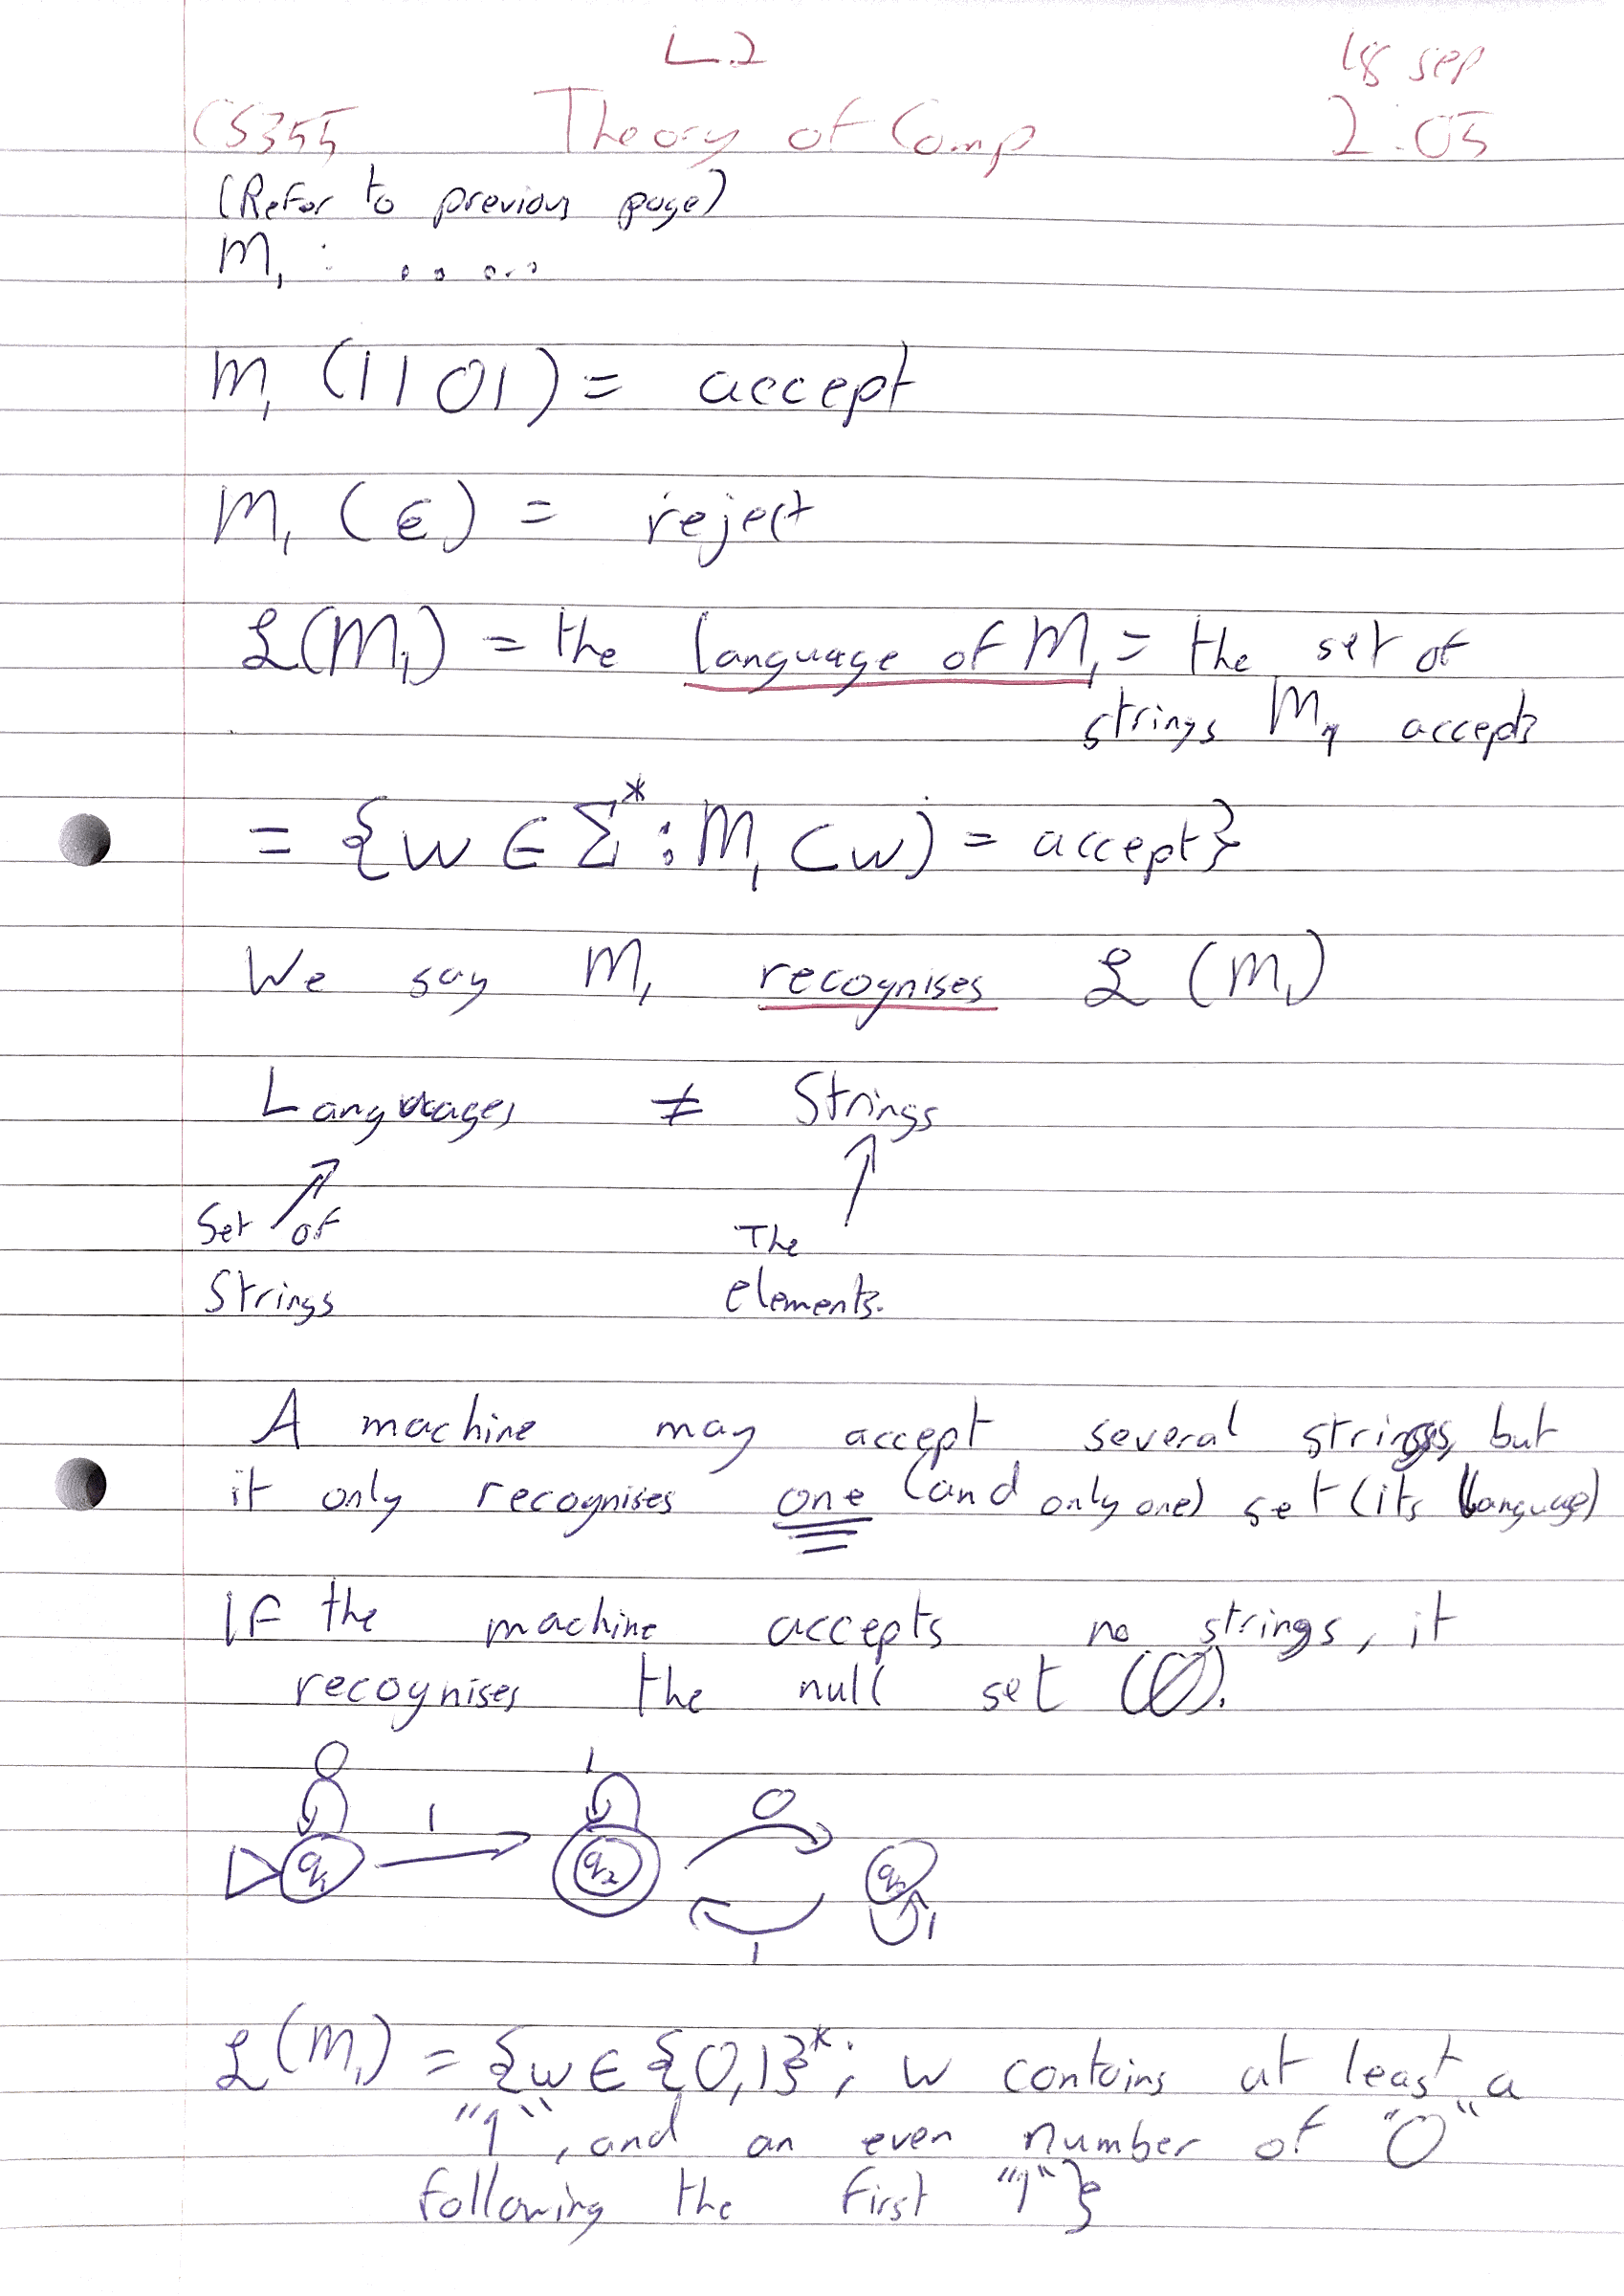 L.2
18 sep
CS355 Theory of Comp 2.05
(Refer to previous page)
M₁ : .....
M₁ (1101) = accept
M₁ (ϵ) = reject
ℒ(M₁) = the language of M₁ = the set of
strings M₁ accepts
= {w ∈ Σ* : M₁ (w) = accept}
We say M₁ recognises ℒ (M₁)
Languages ≠ Strings
Set of The
Strings elements.
A machine may accept several strings, but
it only recognises one (and only one) set (its language)
If the machine accepts no strings, it
recognises the null set (∅).
0 1
1 0
q₁ q₂
1
1
ℒ(M₁) = {w ∈ {0,1}*; w contains at least a
"1", and an even number of "0"
following the first "1"}